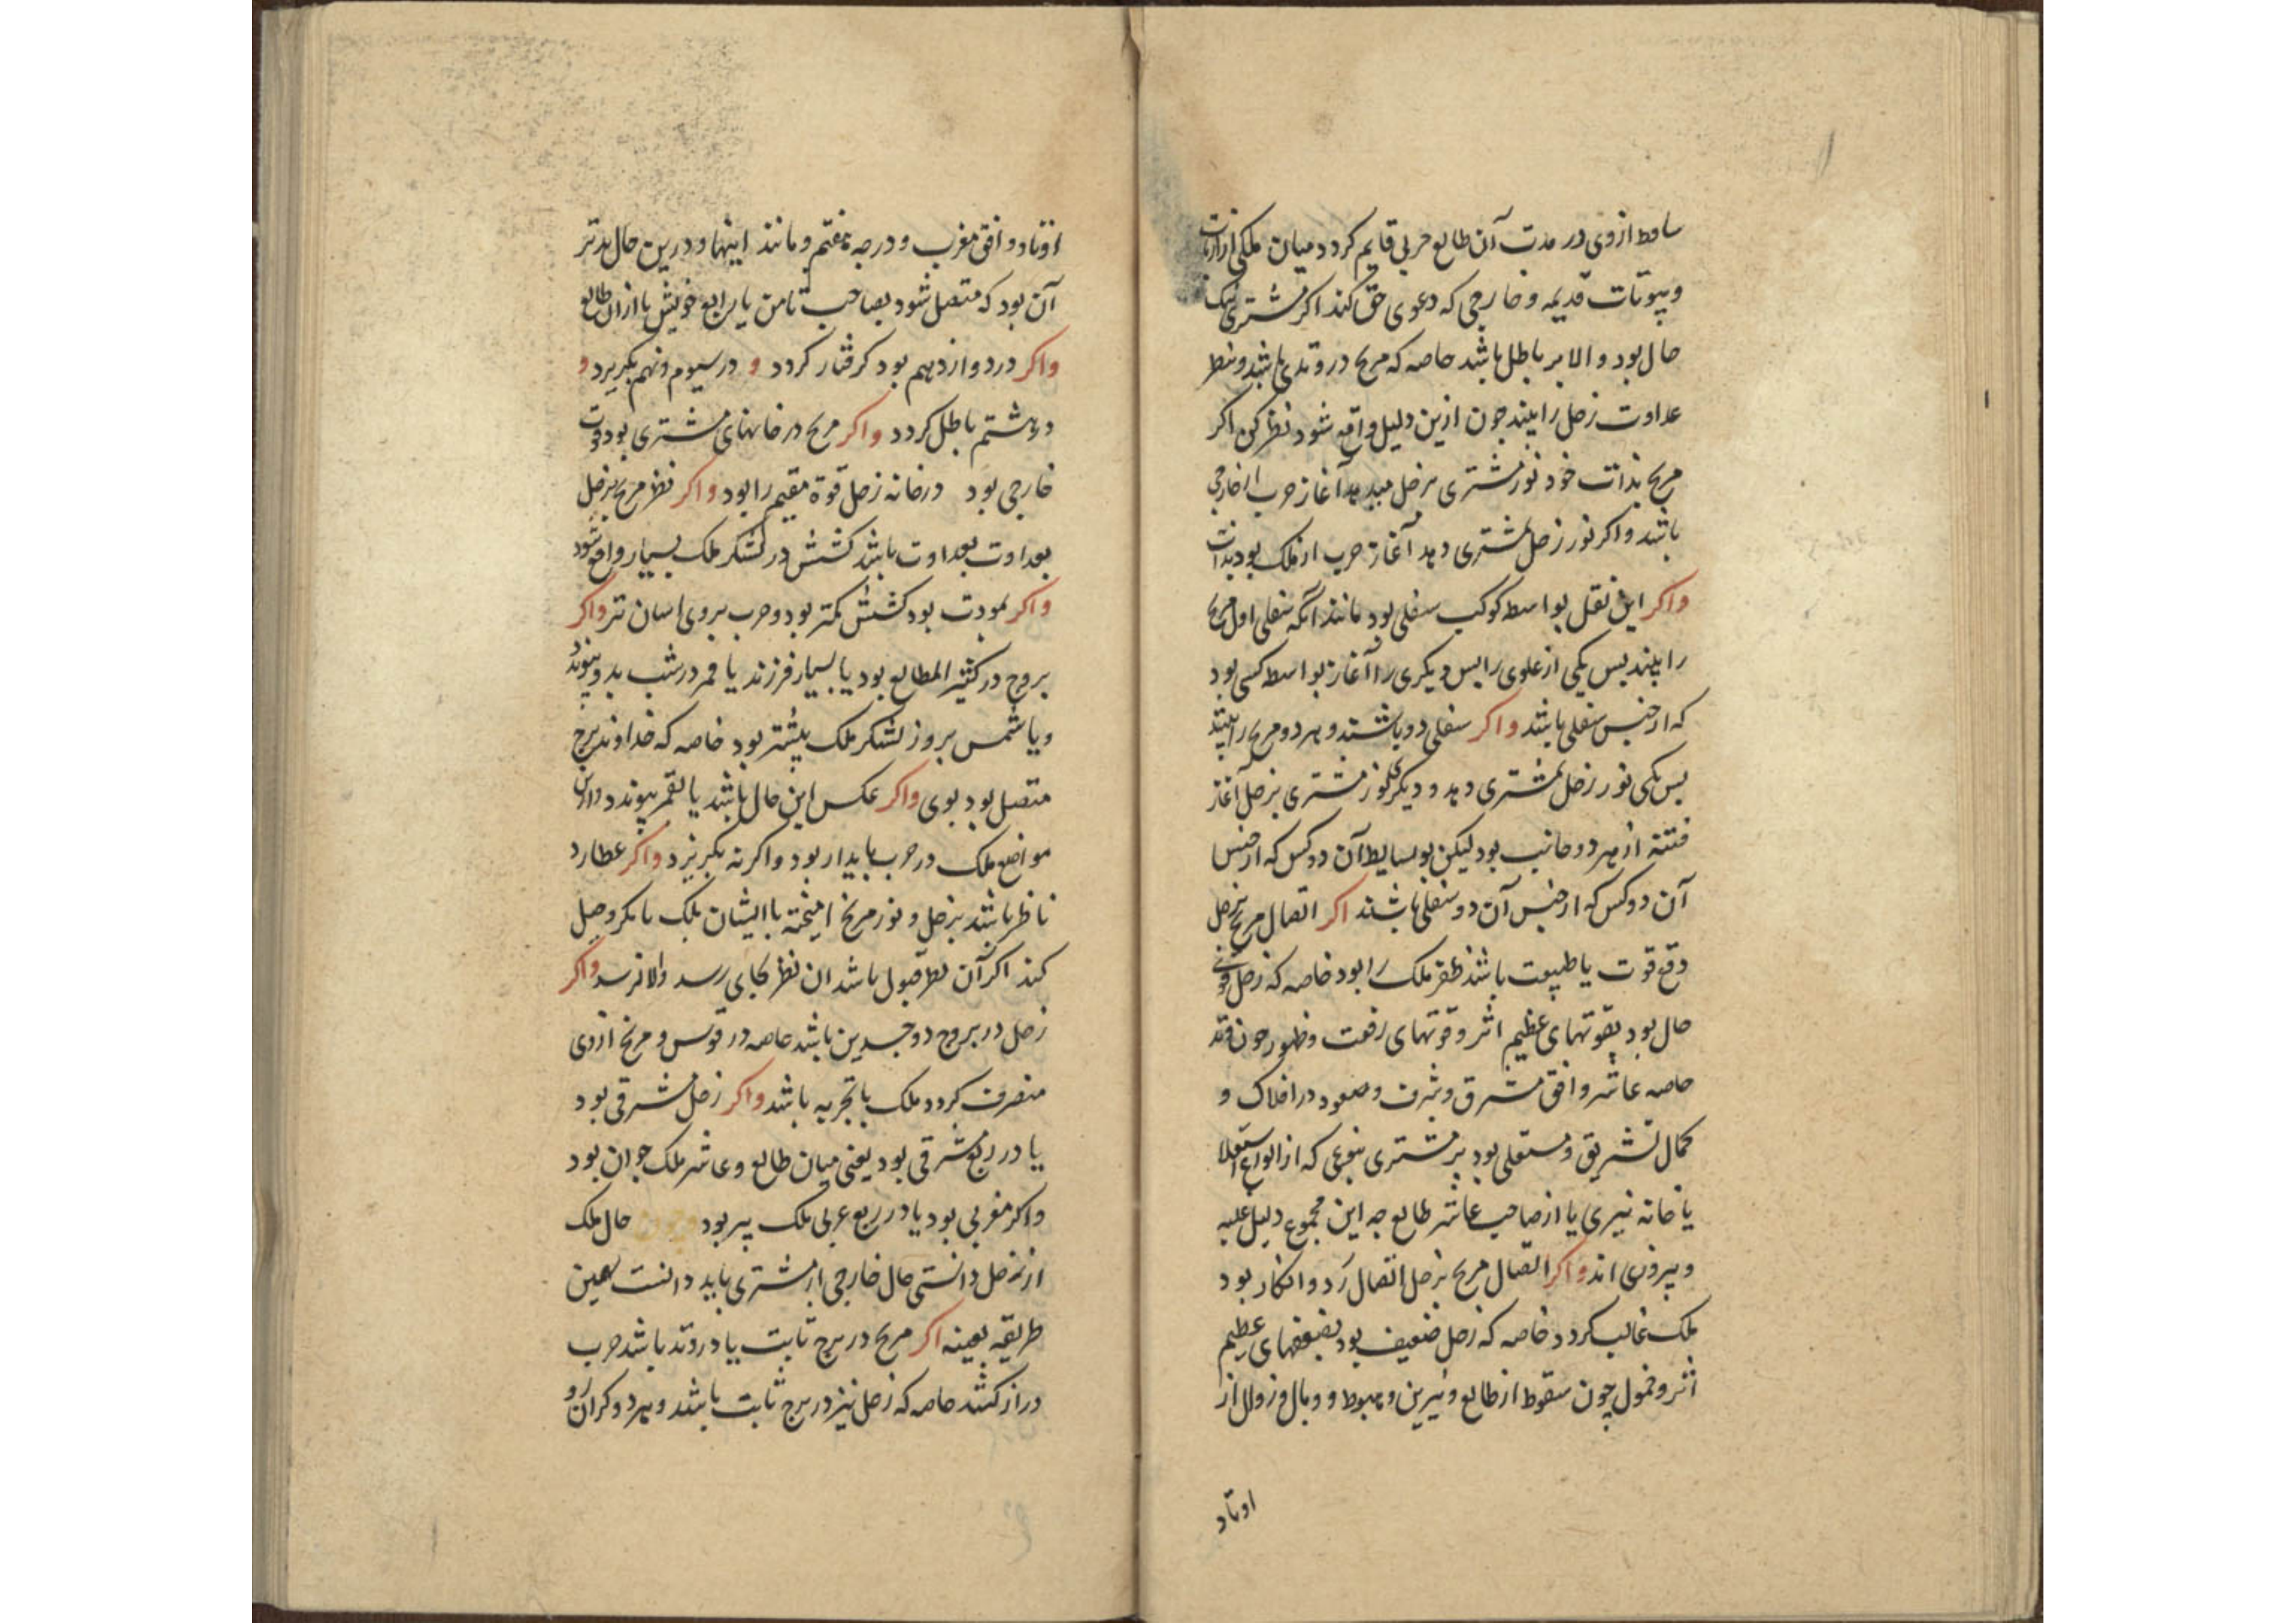 ساقط از وی در مدت آن طالع حربی قایم کردد میان ملکی از ارباب
وبیوتات قدیمه و خارجی که دعوی حق کند اکر مشتری نیک
حال بود والا بر باطل باشد خاصه که مریخ در وتدی باشد ونظر
عداوت زحل را بیند چون ازین دلیل واقع شود نظر کن اکر
مریخ بذات خود نور مشتری بزحل میدهد آغاز حرب از خارجی
باشد واکر نور زحل بمشتری دهد آغاز حرب از ملک بود بذات
واکر این نقل بواسطه کوکب سفلی بود مانند آنکه سفلی اول مریخ
را بیند بس یکی از علوی را بس دیکری را آغاز بواسطه کسی بود
که از جنس سفلی باشد واکر سفلی دو باشند و هر دو مریخ را بینند
بس یکی نور زحل بمشتری دهد و دیکر نور مشتری بزحل آغاز
فتنه از هر دو جانب بود لیکن بوسایط آن دو کس که از جنس
آن دو کس که از جنس آن دو سفلی باشند اکر اتصال مریخ بزحل
دفع قوت یا طبیعت باشد ظفر ملک را بود خاصه که زحل قوی
حال بود بقوتهای عظیم اثر وقوتهای رفعت وظهور چون وتد
خاصه عاشر وافق مشرق وشرف وصعود در افلاک و
کمال تشریق ومستعلی بود بر مشتری بنوعی که از انواع استعلا
یا خانه نیری یا از صاحب عاشر طالع چه این مجموع دلیل غلبه
وپیروزی اند واکر اتصال مریخ بزحل اتصال رد وانکار بود
ملک غالب کردد خاصه که زحل ضعیف بود بضعفهای عظیم
اثر وخمول چون سقوط از طالع ونیرین وهبوط و وبال وزوال از
اوتاد
اوتاد وافق مغرب ودرجه هفتم ومانند اینها ودرین حال بدتر
آن بود که متصل شود بصاحب ثامن یا رابع خویش یا ازان طالع
واکر در دوازدهم بود کرفتار کردد و در سیوم ونهم بکریزد و
در هشتم باطل کردد واکر مریخ در خانهای مشتری بود قوت
خارجی بود در خانه زحل قوة مقیم را بود واکر نظر مریخ بزحل
بعداوت باشد کشش در لشکر ملک بسیار واقع شود
واکر بمودت بود کشش کمتر بود وحرب بروی اسان تر واکر
بروج در کثیر المطالع بود یا بسیار فرزند یا قمر در شب بدو پیوندد
ویا شمس بروز لشکر ملک بیشتر بود خاصه که خداوند برج
متصل بود بوی واکر عکس این حال باشد یا بقمر پیوندد وازین
مواضع ملک در حرب پایدار بود واکر نه بکریزد واکر عطارد
ناظر باشد بزحل ونور مریخ امیخته باایشان ملک بامکر وحیل
کند اکر آن نظر قبول باشد ان نظر بجای رسد والا نرسد واکر
زحل در بروج دوجسدین باشد خاصه در قوس و مریخ ازوی
منصرف کردد ملک باتجربه باشد واکر زحل مشرقی بود
یا در ربع مشرقی بود یعنی میان طالع وعاشر ملک جوان بود
واکر مغربی بود یا در ربع غربی ملک پیر بود وچون حال ملک
از زحل دانستی حال خارجی از مشتری باید دانست همین
طریقه بعینه اکر مریخ در برج ثابت یا در وتد باشد حرب
دراز کشد خاصه که زحل نیز در برج ثابت باشد وهر دو کران رو